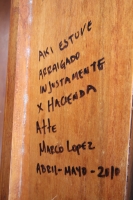 AKI ESTUVE
ARRAIGADO
INJUSTAMENTE
X HACIENDA
ATTE
MARCO LOPEZ
ABRIL-MAYO-2010